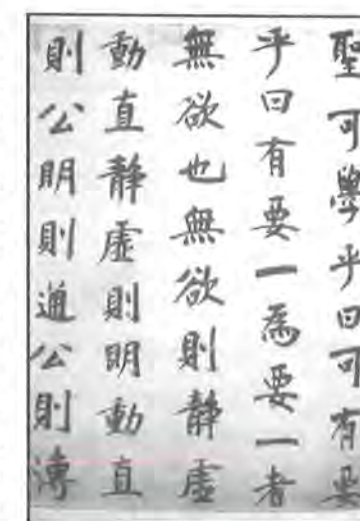 聖可學乎曰可有要
乎曰有要一為要一者
無欲也無欲則靜虛
動直靜虛則明動直
則公明則通公則溥